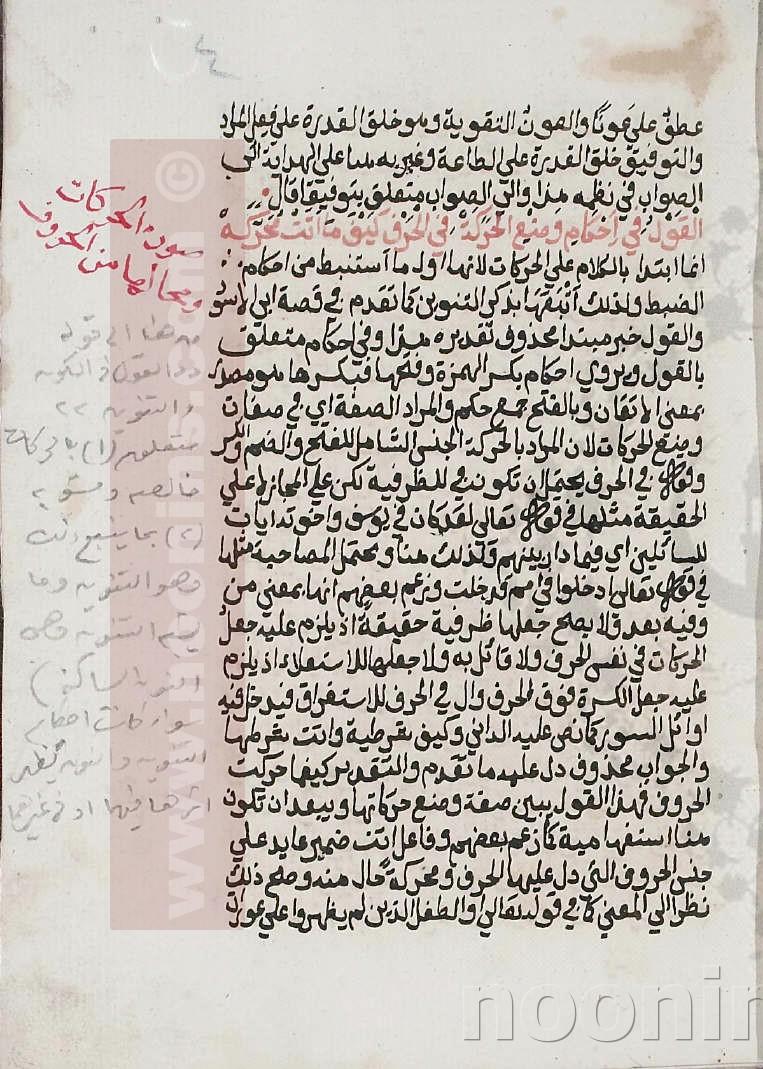 عطف على عونا والعون التقوية وهو خلق القدرة على فعل المراد
والتوفيق خلق القدرة على الطاعة وغيره هنا على الهداية الى
الصواب في نظمه هذا والى الصواب متعلق بتوفيقا قال
القول في احكام وضع الحركة في الحرف كيف ما اتت محركة
انما ابتدا بالكلام علي الحركات لانها اول ما استنبط من احكام
الضبط ولذلك اتبعها بذكر التنوين كما تقدم في قصة ابي الاسود
والقول خبر مبتدا محذوف تقديره هذا وفي احكام متعلق
بالقول ويروي احكام بكسر الهمزة وفتحها فبكسرها هو مصدر
بمعنى الاتقان وبالفتح جمع حكم والمراد الصفة اي في صفات
وضع الحركات لان المراد بالحركة الجنس الشامل للفتح والضم والكسر
وقوله في الحرف يحتمل ان تكون في للظرفية لكن علي المجاز لا علي
الحقيقة مثلها في قوله تعالي لقد كان في يوسف واخوته ايات
للسائلين اي فيما دار بينهم وكذلك هنا ويحتمل المصاحبة مثلها
في قوله تعالى ادخلوا في امم قد خلت وزعم بعضهم انها بمعني من
وفيه بعد ولا يصلح جعلها ظرفية حقيقة اذ يلزم عليه جعل
الحركات في نفس الحرف ولا قائل به ولا جعلها للاستعلاء اذ يلزم
عليه جعل الكسرة فوق الحرف وال في الحرف للاستغراق فيدخل فيه
اوائل السور كما نص عليه الداني وكيف شرطية واتت شرطها
والجواب محذوف دل عليه ما تقدم والتقدير كيفما حركت
الحروف فهذا القول يبين صفة وضع حركاتها ويبعد ان تكون
هنا استفهامية كما زعم بعضهم وفاعل اتت ضمير عايد علي
جنس الحروف التي دل عليها الحرف ومحركة حال منه وصلح ذلك
نظرا الي المعني كما في قوله تعالي او الطفل الذين لم يظهروا على عورات
صور الحركات
ومحالها من الحروف
من هنا الى قوله
والتنوين
متعلق (١) بالحركات
خالصه و
(٢) بما يتبع ذلك
وهو التنوين وما
التنوين وهي
النون الساكنة)
سواء كانت احكام
التنوين والنون يظهر
اثرها فيهما او في غيرهما
www.noorlib.com ©
noonin